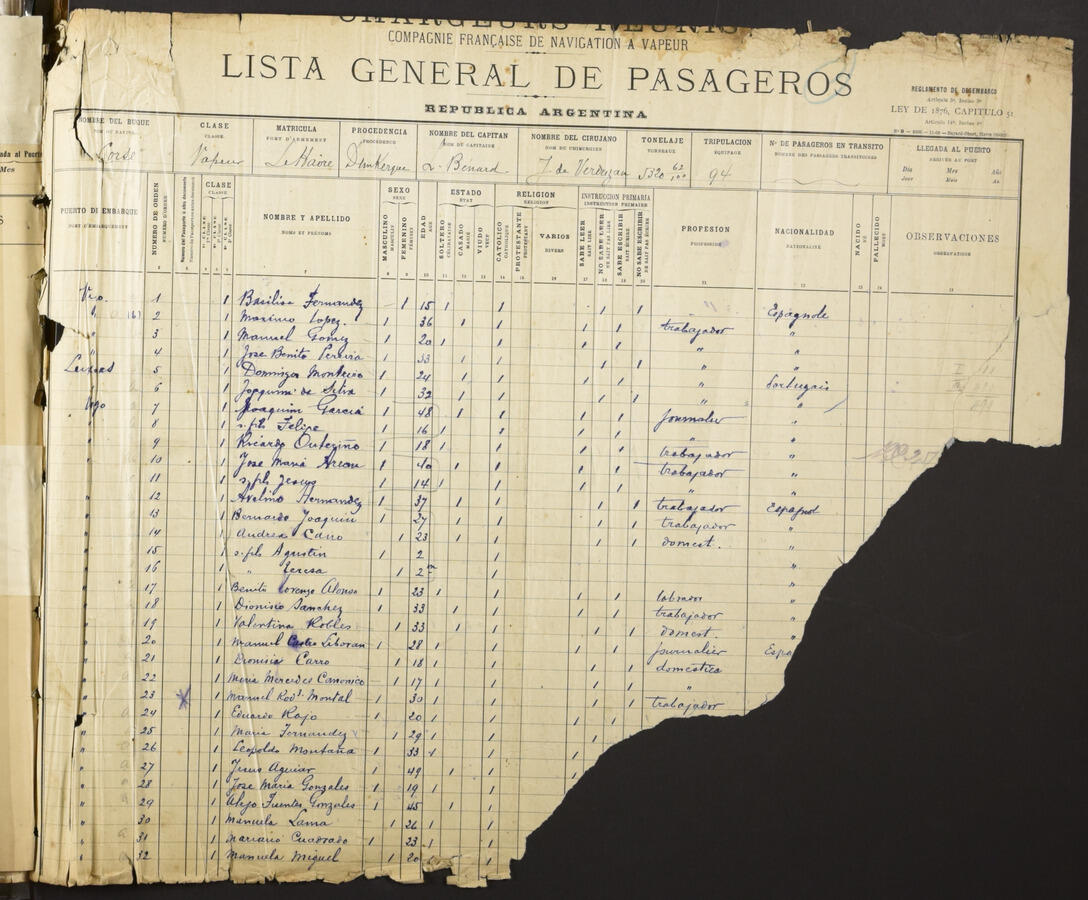 CHARGEURS REUNIS
COMPAGNIE FRANÇAISE DE NAVIGATION A VAPEUR
LISTA GENERAL DE PASAGEROS
REPUBLICA ARGENTINA
REGLAMENTO DE DESEMBARCO
LEY DE 1876, CAPITULO 51
NOMBRE DEL BUQUE CLASE MATRICULA PROCEDENCIA NOMBRE DEL CAPITAN NOMBRE DEL CIRUJANO TONELAJE TRIPULACION Nº DE PASAGEROS EN TRANSITO LLEGADA AL PUERTO
CLASSE PORT D'ARMEMENT PROCÉDENCE NOM DU CAPITAINE NOM DU CHIRURGIEN TONNEAUX EQUIPAGE ARRIVÉE AU PORT
Dia Mes Año
Corse Vapeur Le Havre Dunkerque L. Bénard J. de Verdezan 94
PUERTO DE EMBARQUE NUMERO DE ORDEN CLASE NOMBRE Y APELLIDO SEXO EDAD ESTADO RELIGION INSTRUCCION PRIMARIA PROFESION NACIONALIDAD NACIDO FALLECIDO OBSERVACIONES
NOMS ET PRÉNOMS MASCULINO FEMENINO SOLTERO CASADO VIUDO CATOLICO PROTESTANTE VARIOS SABE LEER NO SABE LEER SABE ESCRIBIR NO SABE ESCRIBIR
Vigo 1 1 Basilisa Fernandez 1 15 1 1 1 1 " Espagnole
" 2 1 Maximo Lopez 1 36 1 1 1 1 trabajador "
" 3 1 Manuel Gomez 1 20 1 1 1 1 " "
" 4 1 Jose Benito Pereira 1 33 1 1 1 1 "
Leixoes 5 1 Domingos Monteiro 1 24 1 1 1 1 " Portugais
" 6 1 Joaquim da Silva 1 32 1 1 1 1 " "
Vigo 7 1 Joaquin Garcia 1 48 1 1 1 1 journalier
" 8 1 s. fils Felipe 1 16 1 1 1 1 " "
" 9 1 Ricardo Outeriño 1 18 1 1 1 1 trabajador "
" 10 1 Jose Maria 1 40 1 1 1 1 trabajador "
" 11 1 s. fils Jesus 1 14 1 1 1 1 " "
" 12 1 Avelino Hernandez 1 37 1 1 1 1 trabajador Español
" 13 1 Bernardo Joaquin 1 27 1 1 1 1 trabajador "
" 14 1 Andrea Cano 1 23 1 1 1 1 domest. "
" 15 1 s. fils Agustin 1 2 1 "
" 16 1 " Teresa 1 2 m 1 "
" 17 1 Benito Lorenzo Alonso 1 23 1 1 1 1 labrador "
" 18 1 Dionisio Sanchez 1 33 1 1 1 1 trabajador "
" 19 1 Valentina Robles 1 33 1 1 1 1 domest. "
" 20 1 Manuel Castro 1 28 1 1 1 1 journalier Espa
" 21 1 Dionisia Carro 1 18 1 1 1 1 domestica
" 22 1 Maria Mercedes Canonico 1 17 1 1 1 1 "
" 23 1 Manuel Rodz. Montal 1 30 1 1 1 1 trabajador
" 24 1 Eduardo Rojo 1 20 1 1 1 1
" 25 1 Maria Fernandez 1 29 1 1 1
" 26 1 Leopoldo Montaña 1 33 1 1 1
" 27 1 Jesus Aguiar 1 49 1 1 1
" 28 1 Jose Maria Gonzales 1 19 1 1
" 29 1 Alejo Fuentes Gonzales 1 45 1 1
" 30 1 Manuela Lama 1 26 1 1
" 31 1 Mariano Cuadrado 1 23 1 1
" 32 1 Manuela Miguel 1 20 1 1